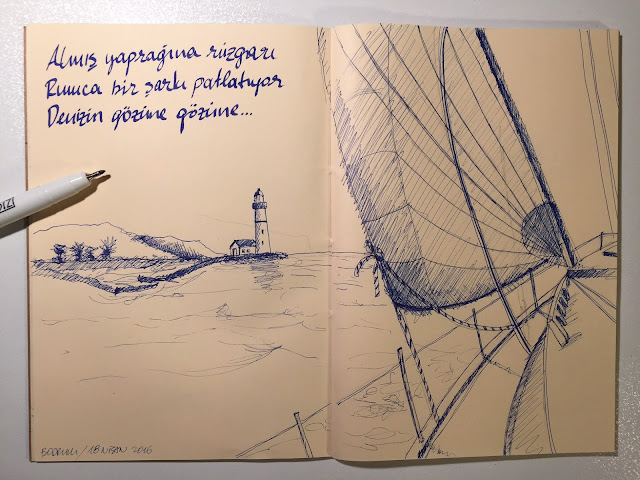 Almış yaprağına rüzgarı
Rumca bir şarkı patlatıyor
Denizin gözüne gözüne...
BODRUM / 18 NİSAN 2016